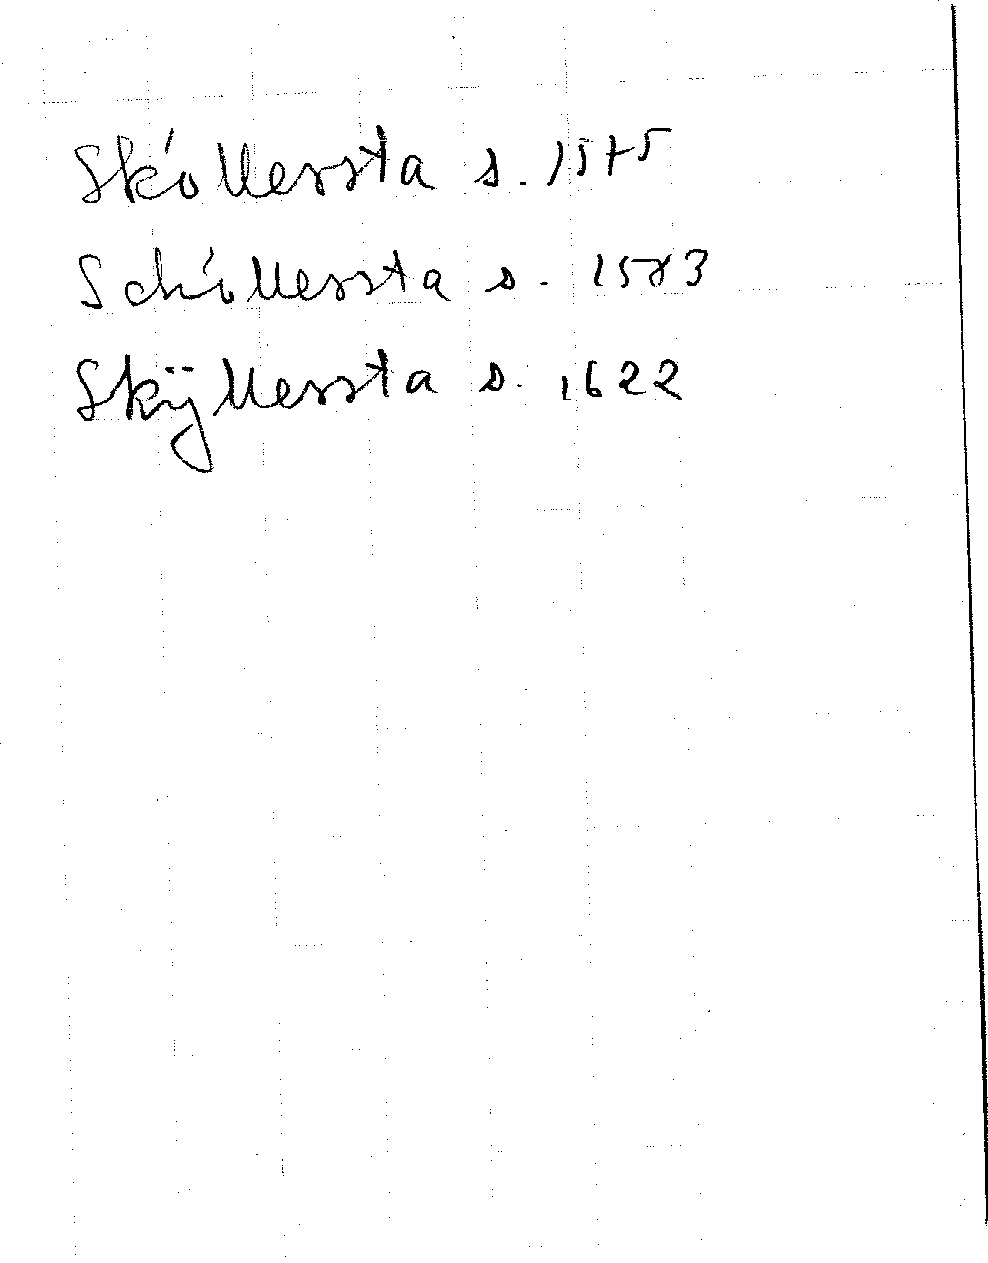 Skóllerssta s. 1575
Schóllerssta s. 1583
Skÿllerssta s. 1622